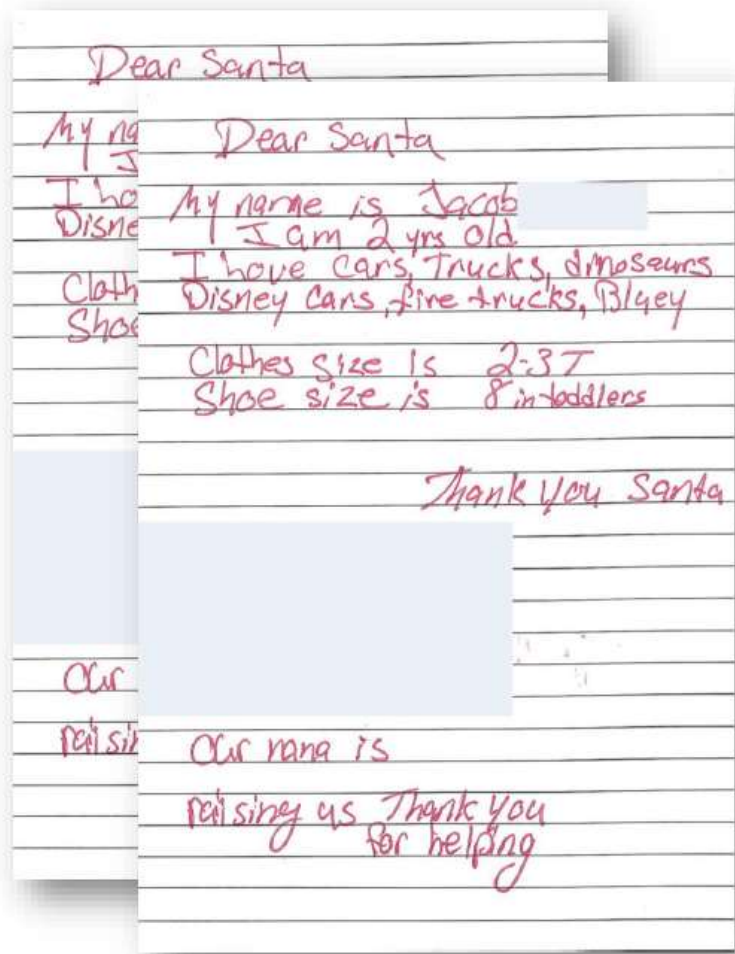 Dear Santa
My na
J
I ho
Disne
Cloth
Shoe
Our
raisin
Dear Santa
My name is Jacob
I am 2 yrs old
I hove cars, trucks, dinosaurs
Disney cars, fire trucks, Bluey
Clothes size is 2-3T
Shoe size is 8 in toddlers
Thank you Santa
Our nana is
raising us Thank you
for helping